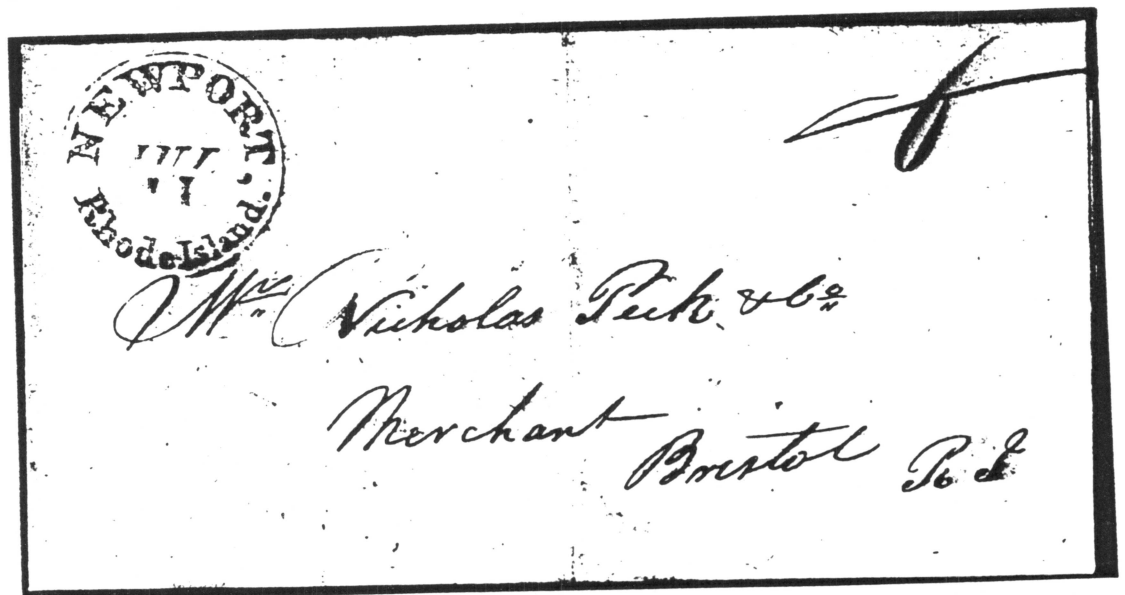 NEWPORT.
Rhode Island.
Mr Nicholas Peck & Co
Merchant
Bristol R I